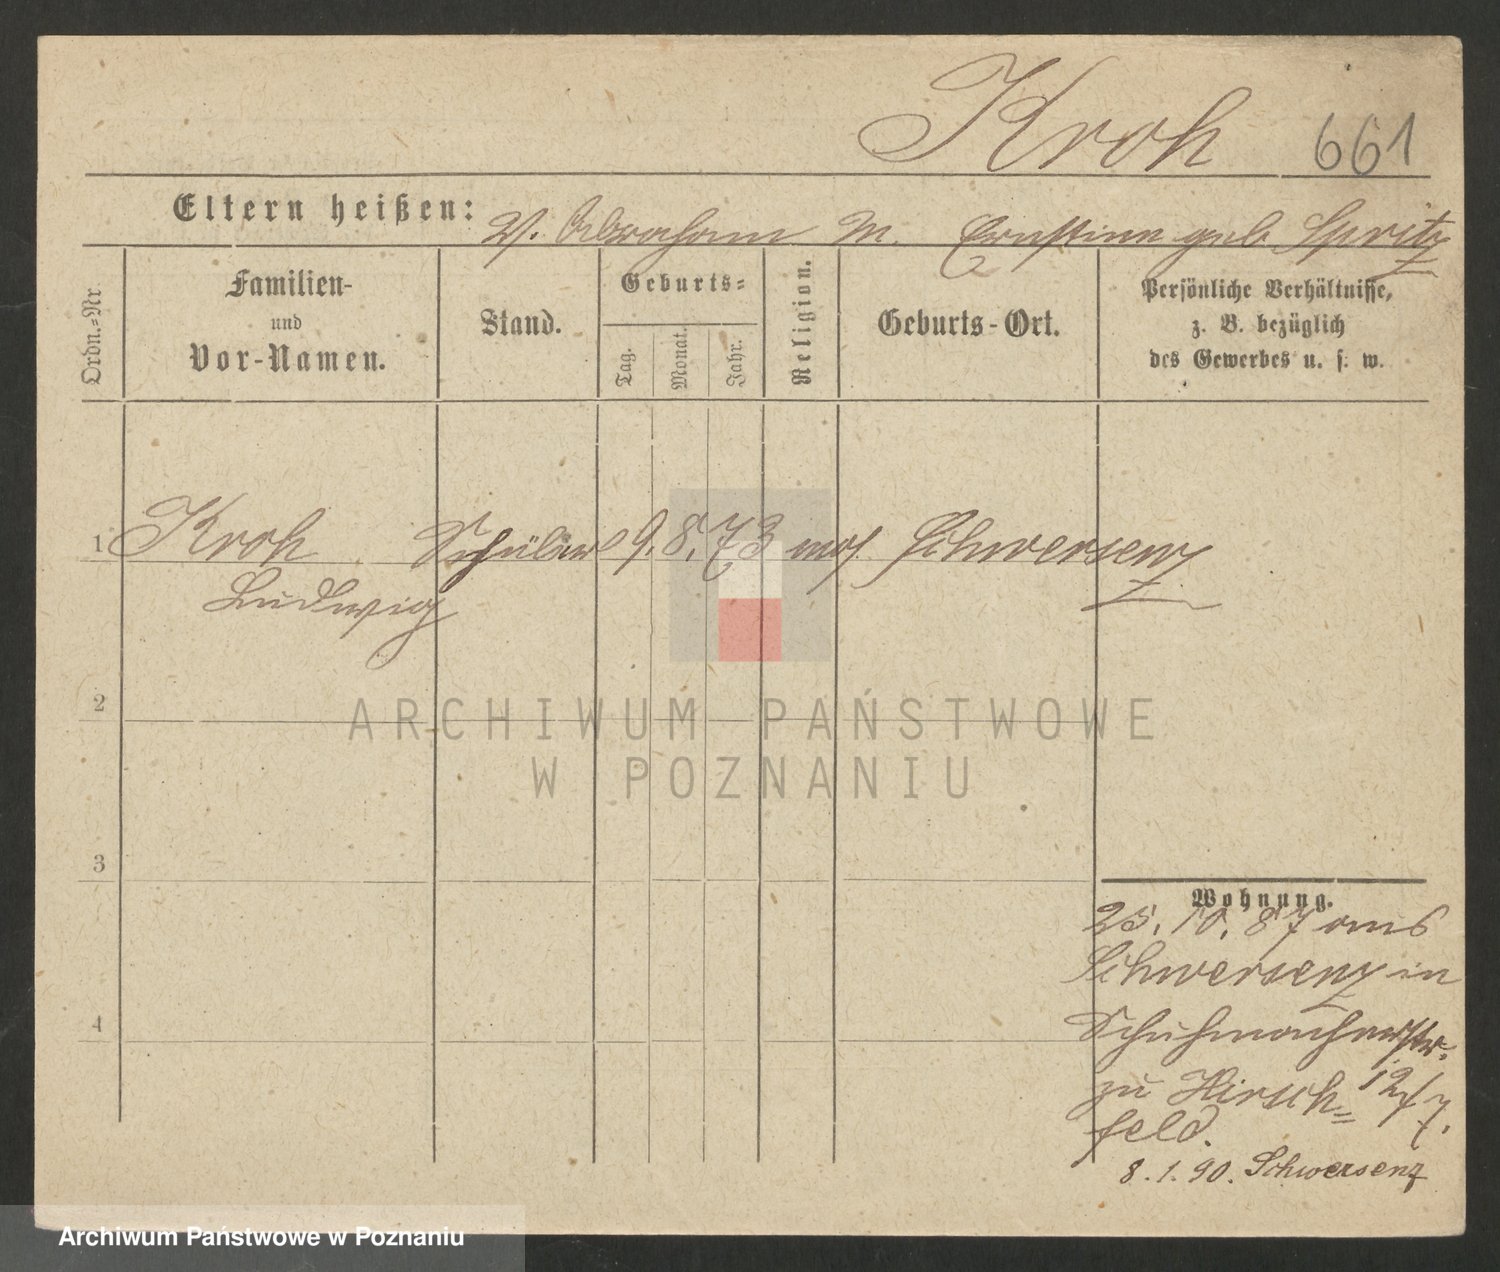 Kroh 661
Eltern heißen: V. Abraham M. Ernstine geb Spritz
Ordn.-Nr.
Familien-
und
Vor-Namen.
Stand.
Geburts-
Tag.
Monat.
Jahr.
Religion.
Geburts-Ort.
Persönliche Verhältnisse,
z. B. bezüglich
des Gewerbes u. s. w.
1 Kroh Schüler 9. 8. 73 mos Schwersenz
Ludwig
2
3
4
Wohnung.
25. 10. 87 aus
Schwersenz in
Schuhmacherstr.
zu Hirsch= 12/7.
feld.
8. 1. 90. Schwersenz
ARCHIWUM PAŃSTWOWE
W POZNANIU
Archiwum Państwowe w Poznaniu